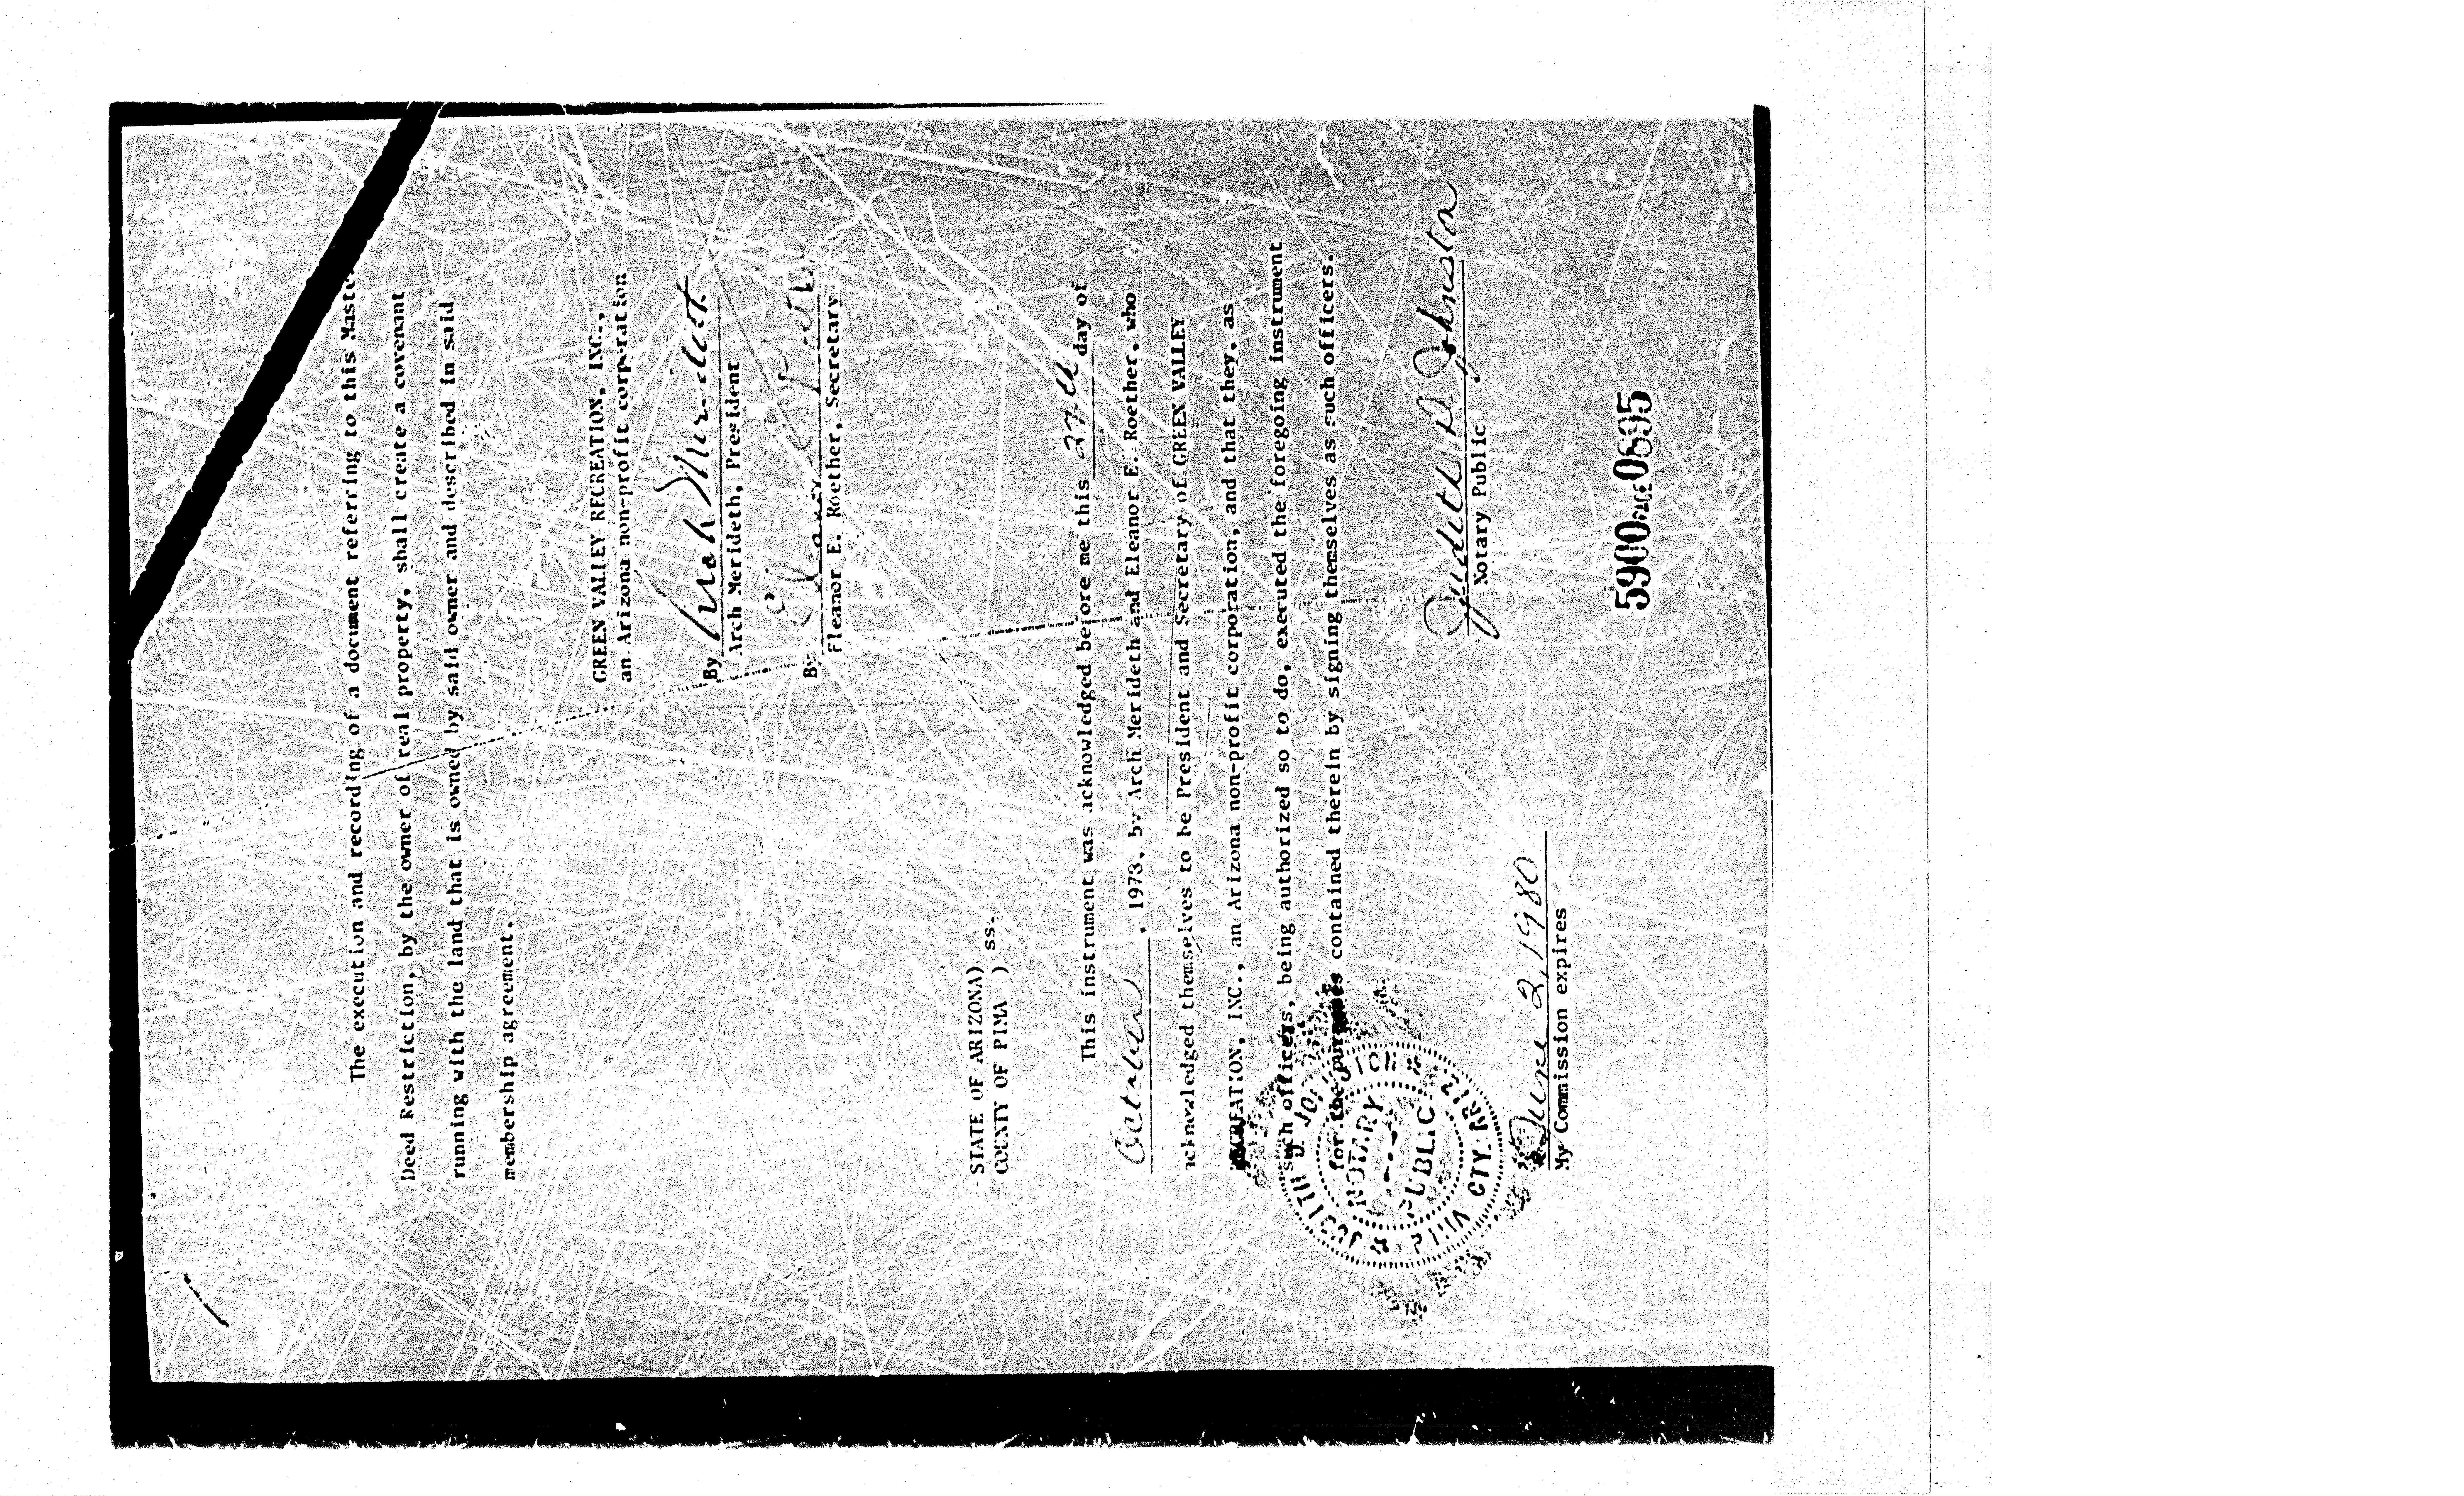 The execution and recording of a document referring to this Master
Deed Restriction, by the owner of real property, shall create a covenant
running with the land that is owned by said owner and described in said
membership agreement.
GREEN VALLEY RECREATION, INC.,
an Arizona non-profit corporation
By Arch Merideth
Arch Merideth, President
By Eleanor E Roether
Eleanor E. Roether, Secretary
STATE OF ARIZONA)
COUNTY OF PIMA ) ss.
This instrument was acknowledged before me this 27th day of
October, 1978, by Arch Merideth and Eleanor E. Roether, who
acknowledged themselves to be President and Secretary of GREEN VALLEY
RECREATION, INC., an Arizona non-profit corporation, and that they, as
such officers, being authorized so to do, executed the foregoing instrument
for the purposes contained therein by signing themselves as such officers.
Judith D. Johnston
Notary Public
JUDITH D. JOHNSTON
NOTARY
PUBLIC
PIMA CTY. ARIZ.
June 2, 1980
My Commission expires
5900 PAGE 0695